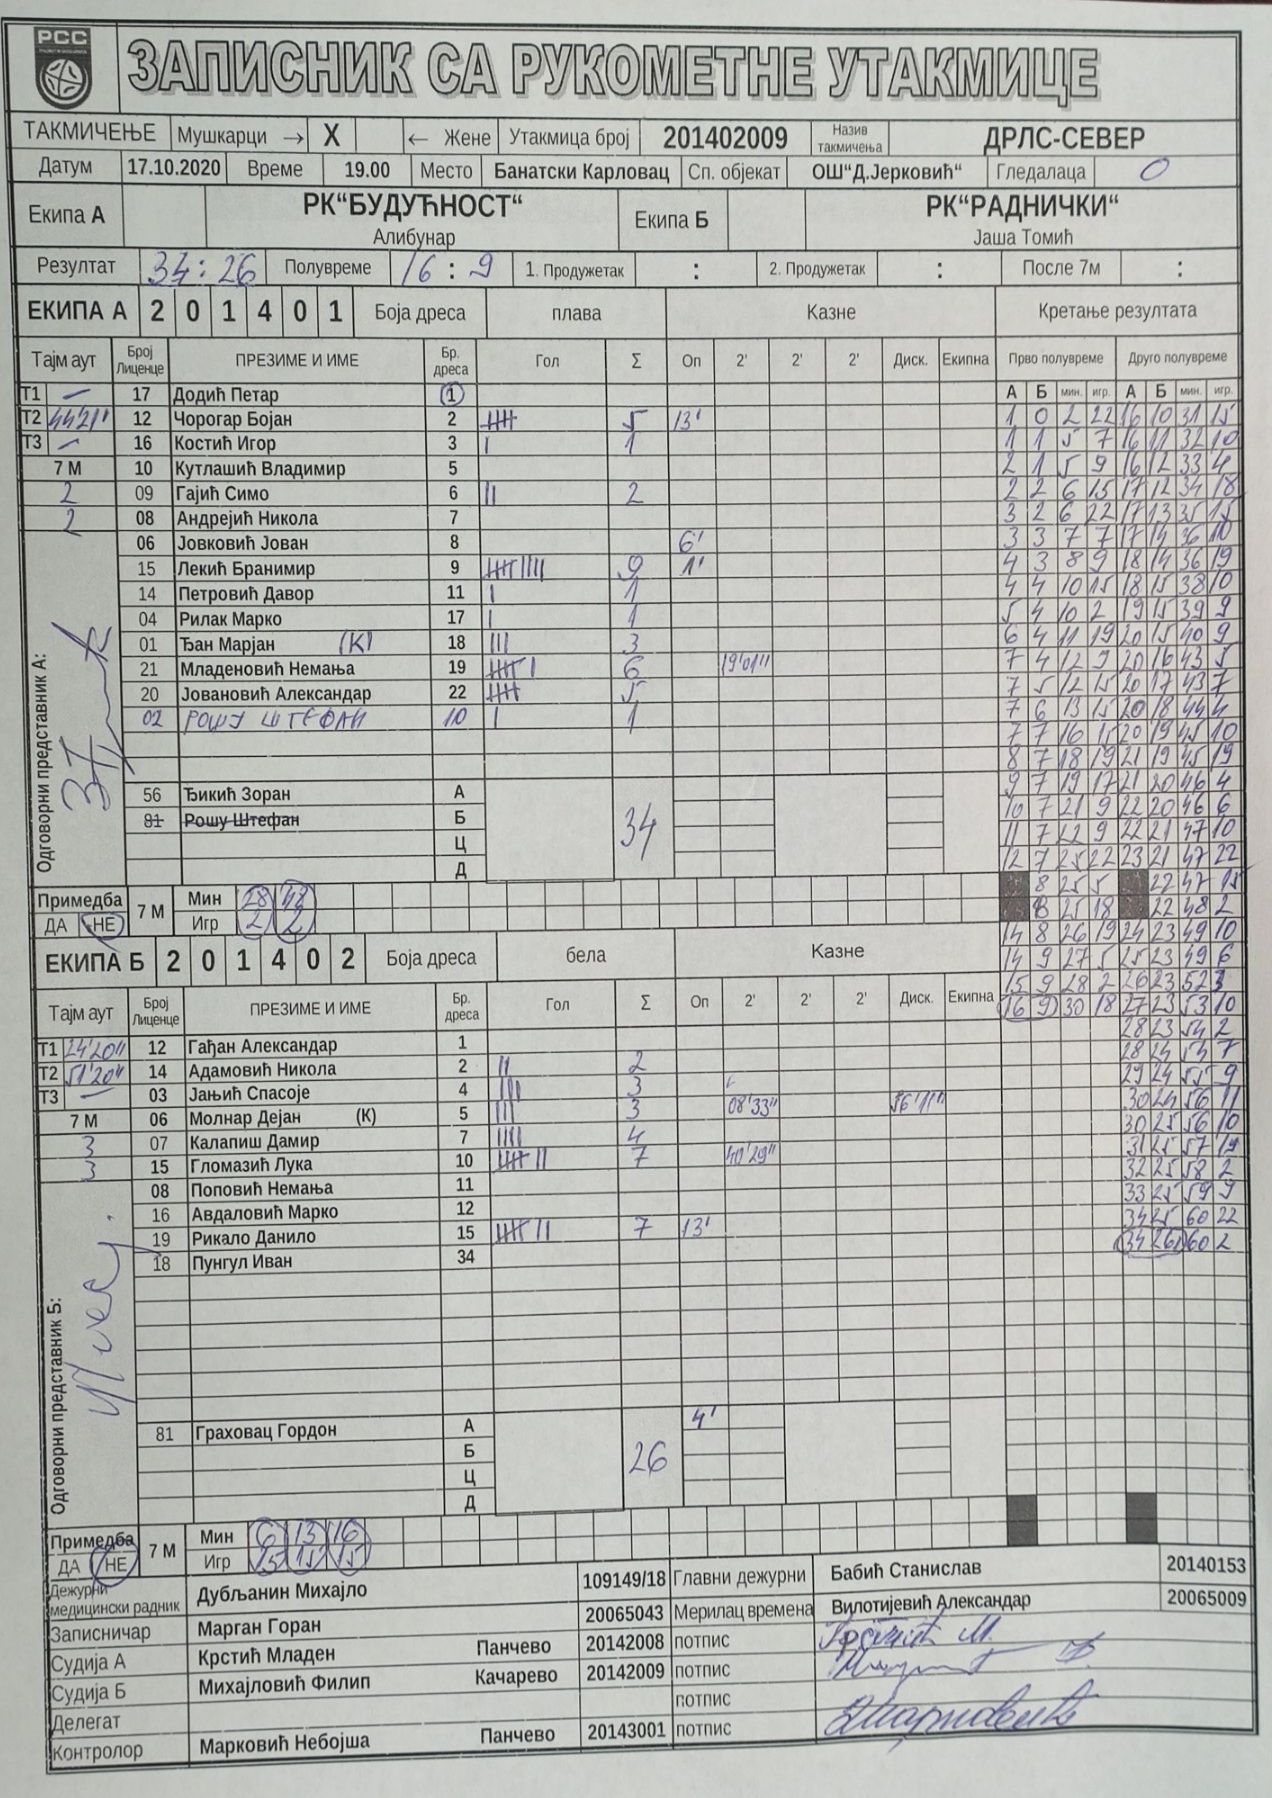 РСС
ЗАПИСНИК СА РУКОМЕТНЕ УТАКМИЦЕ
ТАКМИЧЕЊЕ Мушкарци → X ← Жене Утакмица број 201402009 Назив такмичења ДРЛС-СЕВЕР
Датум 17.10.2020 Време 19.00 Место Банатски Карловац Сп. објекат ОШ“Д.Јерковић“ Гледалаца 0
Екипа А РК“БУДУЋНОСТ“ Алибунар Екипа Б РК“РАДНИЧКИ“ Јаша Томић
Резултат 34:26 Полувреме 16:9 1. Продужетак : 2. Продужетак : После 7м :
ЕКИПА А 2 0 1 4 0 1 Боја дреса плава Казне Кретање резултата
Тајм аут Број Лиценце ПРЕЗИМЕ И ИМЕ Бр. дреса Гол Σ Оп 2' 2' 2' Диск. Екипна Прво полувреме Друго полувреме
А Б мин. игр. А Б мин. игр.
Т1 – 17 Додић Петар 1
Т2 44'21" 12 Чорогар Бојан 2 5 13' 1 0 2 22 16 10 31 15
Т3 – 16 Костић Игор 3 1 1 1 5 7 16 11 32 10
7 М 10 Кутлашић Владимир 5 2 1 5 9 16 12 33 4
2 09 Гајић Симо 6 2 2 2 6 15 17 12 34 18
2 08 Андрејић Никола 7 3 2 6 22 17 13 35 15
06 Јовковић Јован 8 6' 3 3 7 7 17 14 36 10
15 Лекић Бранимир 9 9 1' 4 3 8 9 18 14 36 19
14 Петровић Давор 11 1 4 4 10 15 18 15 38 10
04 Рилак Марко 17 1 5 4 10 2 19 15 39 9
01 Ђан Марјан (К) 18 3 6 4 11 19 20 15 40 9
21 Младеновић Немања 19 6 19'01" 7 4 12 9 20 16 43 5
20 Јовановић Александар 22 5 7 5 12 15 20 17 43 7
02 РОШУ ШТЕФАН 10 1 7 6 13 15 20 18 44 4
7 7 16 15 20 19 45 10
8 7 18 19 21 19 45 19
56 Ђикић Зоран А 9 7 19 17 21 20 46 4
81 Рошу Штефан Б 34 10 7 21 9 22 20 46 6
Ц 11 7 22 9 22 21 47 10
Д 12 7 25 22 23 21 47 22
Одговорни представник А:
Примедба 7 М Мин 28 48 8 25 5 22 47 15
ДА НЕ Игр 2 2 8 25 18 22 48 2
14 8 26 19 24 23 49 10
ЕКИПА Б 2 0 1 4 0 2 Боја дреса бела Казне 14 9 27 5 25 23 49 6
15 9 28 2 26 23 52
Тајм аут Број Лиценце ПРЕЗИМЕ И ИМЕ Бр. дреса Гол Σ Оп 2' 2' 2' Диск. Екипна 16 9 30 18 27 23 53 10
28 23 54 2
Т1 24'20" 12 Гађан Александар 1 28 24 54 7
Т2 51'20" 14 Адамовић Никола 2 2 29 24 55 9
Т3 – 03 Јањић Спасоје 4 3 30 24 56 11
7 М 06 Молнар Дејан (К) 5 3 08'33" 56'11" 30 25 56 10
3 07 Калапиш Дамир 7 4 31 25 57 19
3 15 Гломазић Лука 10 7 40'29" 32 25 58 2
08 Поповић Немања 11 33 25 59 9
16 Авдаловић Марко 12 34 25 60 22
19 Рикало Данило 15 7 13' 34 26 60 2
18 Пунгул Иван 34
Одговорни представник Б:
81 Граховац Гордон А 4'
Б 26
Ц
Д
Примедба 7 М Мин 6 13 16
ДА НЕ Игр 15 15 15
Дежурни медицински радник Дубљанин Михајло 109149/18 Главни дежурни Бабић Станислав 20140153
Записничар Марган Горан 20065043 Мерилац времена Вилотијевић Александар 20065009
Судија А Крстић Младен Панчево 20142008 потпис
Судија Б Михајловић Филип Качарево 20142009 потпис
Делегат потпис
Контролор Марковић Небојша Панчево 20143001 потпис